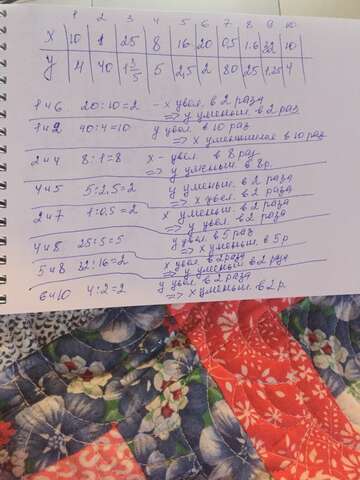 1 2 3 4 5 6 7 8 9 10
x 10 1 25 8 16 20 0,5 1.6 32 10
y 4 40 1 3/5 5 2,5 2 80 25 1,25 4
1 и 6 20:10=2 - x увел. в 2 раза
=> y уменьш. в 2 раз
1 и 2 40:4=10 y увел. в 10 раз
=> x уменьшилае в 10 раз
2 и 4 8:1=8 x - увел. в 8 раз
=> y уменьш. в 8р.
4 и 5 5:2,5=2 y уменьш. в 2 раза
=> x увел. в 2 раза
2 и 7 1:0.5=2 x уменьш. в 2 раза
=> y увел. в 2 раза
4 и 8 25:5=5 y увел. в 5 раз
=> x уменьш. в 5 р
5 и 8 32:16=2 x увел. в 2 раза
=> y уменьш. в 2 раза
6 и 10 4:2=2 y увел. в 2 раза
=> x уменьш. в 2 р.